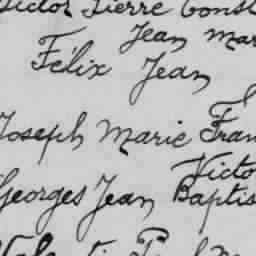 Victor Pierre Const
Jean Mar
Félix Jean
Joseph Marie Fran
Victo
Georges Jean Baptis